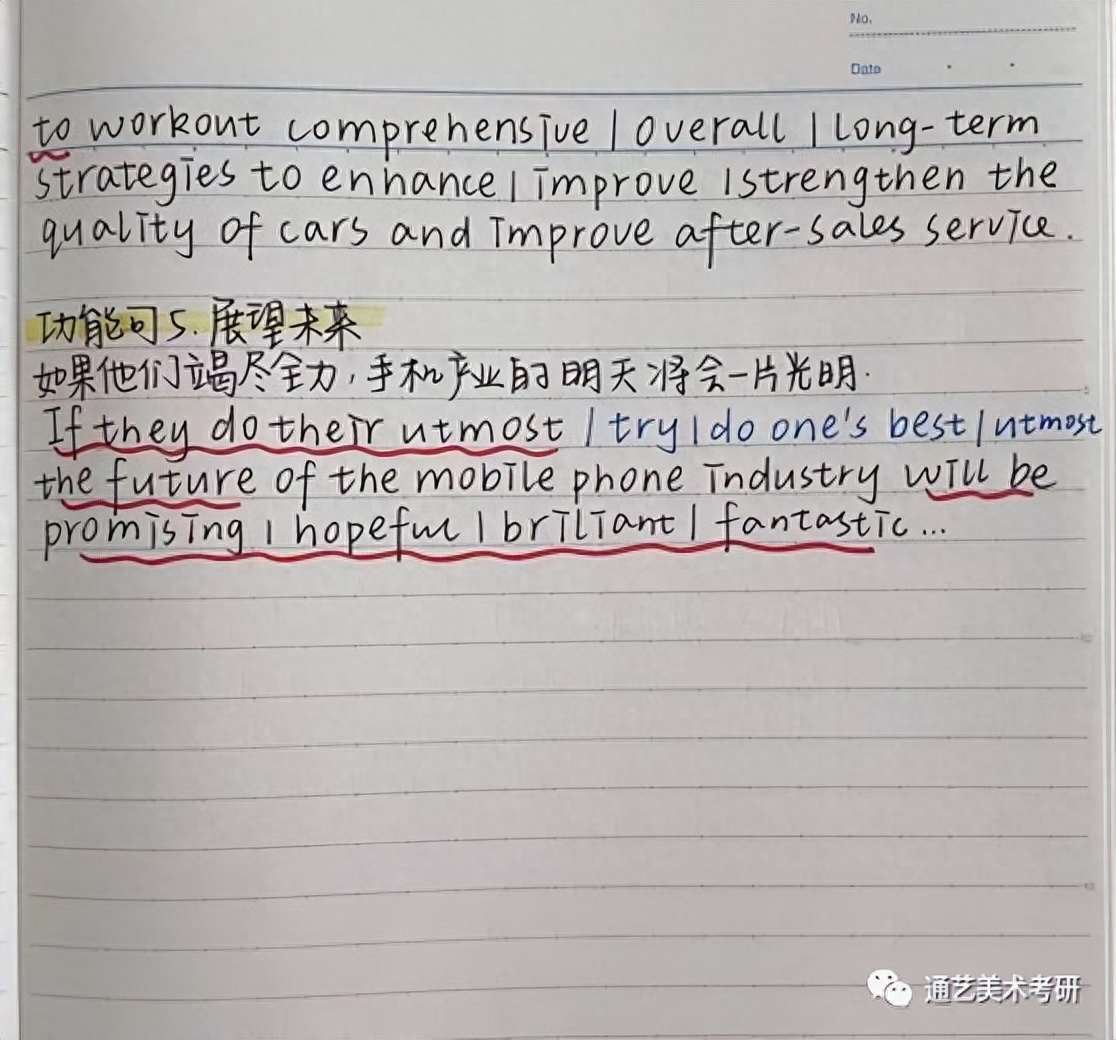 No.
Date
to workout comprehensive | overall | long-term
strategies to enhance | improve | strengthen the
quality of cars and improve after-sales service.
功能句5.展望未来
如果他们竭尽全力,手机产业的明天将会一片光明.
If they do their utmost / try | do one's best | utmost
the future of the mobile phone industry will be
promising | hopeful | briliant | fantastic...
通艺美术考研